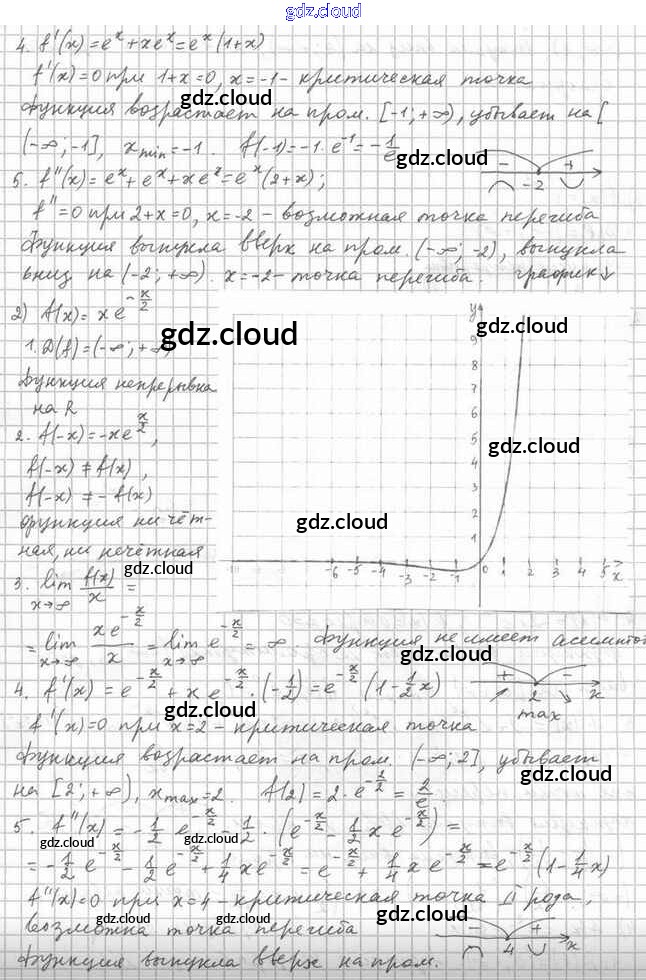 gdz.cloud
4. f'(x) = eˣ + xeˣ = eˣ(1+x)
f'(x) = 0 при 1+x = 0, x = -1 - критическая точка
gdz.cloud
функция возрастает на пром. [-1; +∞), убывает на [
(-∞; -1], x_min = -1. f(-1) = -1·e⁻¹ = -1/e
gdz.cloud
- +
-2
5. f''(x) = eˣ + eˣ + xeˣ = eˣ(2+x);
f'' = 0 при 2+x = 0, x = -2 - возможная точка перегиба
функция выпукла вверх на пром. (-∞; -2), выпукла
вниз на (-2; +∞). x = -2 - точка перегиба. график↓
2) f(x) = xe^(-x/2)
gdz.cloud
1. D(f) = (-∞; +∞)
функция непрерывна
на R
2. f(-x) = -xe^(x/2),
f(-x) ≠ f(x),
f(-x) ≠ -f(x)
функция ни чёт-
ная, ни нечётная
y
9
8
7
6
5
4
3
2
1
-6 -5 -4 -3 -2 -1 0 1 2 3 4 5 x
gdz.cloud
gdz.cloud
gdz.cloud
3. lim x→∞ f(x)/x =
= lim x→∞ xe^(-x/2)/x = lim x→∞ e^(-x/2) = ∞ функция не имеет асимптот
gdz.cloud
gdz.cloud
4. f'(x) = e^(-x/2) + xe^(-x/2)·(-1/2) = e^(-x/2)(1 - 1/2 x)
+ -
2 x
max
gdz.cloud
f'(x) = 0 при x = 2 - критическая точка
функция возрастает на пром. (-∞; 2], убывает
gdz.cloud
на [2; +∞), x_max = 2. f(2) = 2·e^(-2/2) = 2/e
5. f''(x) = -1/2 e^(-x/2) - 1/2·(e^(-x/2) - 1/2 xe^(-x/2)) =
gdz.cloud gdz.cloud
= -1/2 e^(-x/2) - 1/2 e^(-x/2) + 1/4 xe^(-x/2) = e^(-x/2) + 1/4 xe^(-x/2) = e^(-x/2)(1 - 1/4 x)
f''(x) = 0 при x = 4 - критическая точка II рода,
возможна точка перегиба
gdz.cloud gdz.cloud gdz.cloud
- +
4 x
функция выпукла вверх на пром.
gdz.cloud